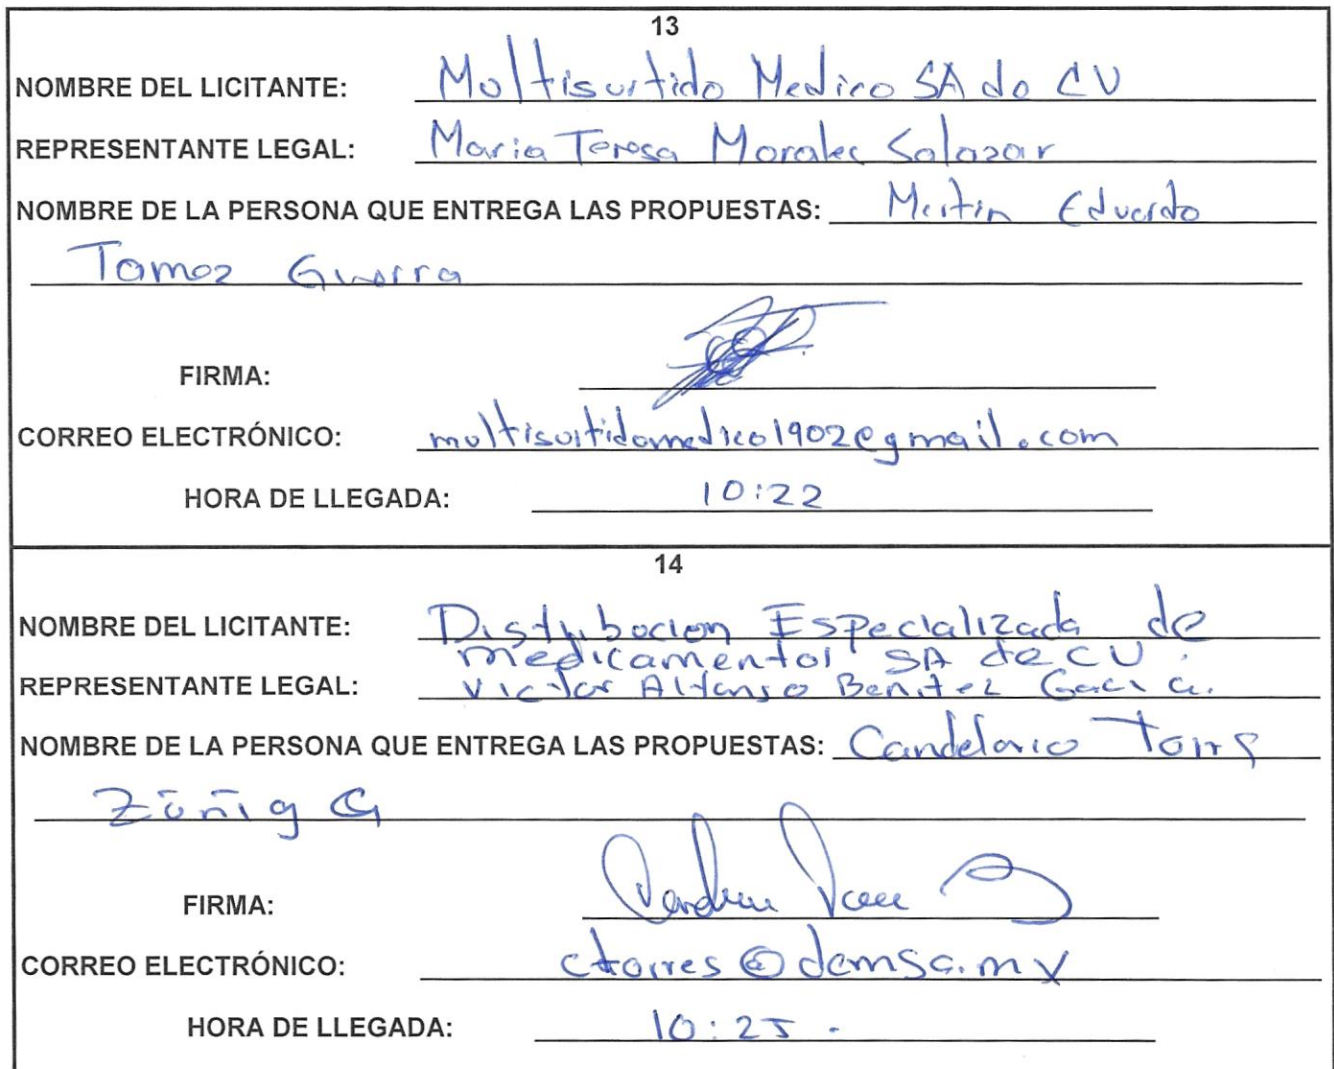 13
NOMBRE DEL LICITANTE: Multisurtido Medico SA de CV
REPRESENTANTE LEGAL: Maria Teresa Morales Salazar
NOMBRE DE LA PERSONA QUE ENTREGA LAS PROPUESTAS: Martin Eduardo
Tamez Guerra
FIRMA:
CORREO ELECTRÓNICO: multisurtidomedico1902@gmail.com
HORA DE LLEGADA: 10:22
14
NOMBRE DEL LICITANTE: Distribucion Especializada de
medicamentos SA de CV.
REPRESENTANTE LEGAL: Victor Alfonso Benitez Garcia.
NOMBRE DE LA PERSONA QUE ENTREGA LAS PROPUESTAS: Candelario Torres
Zúñiga
FIRMA:
CORREO ELECTRÓNICO: ctorres@demsa.mx
HORA DE LLEGADA: 10:25.